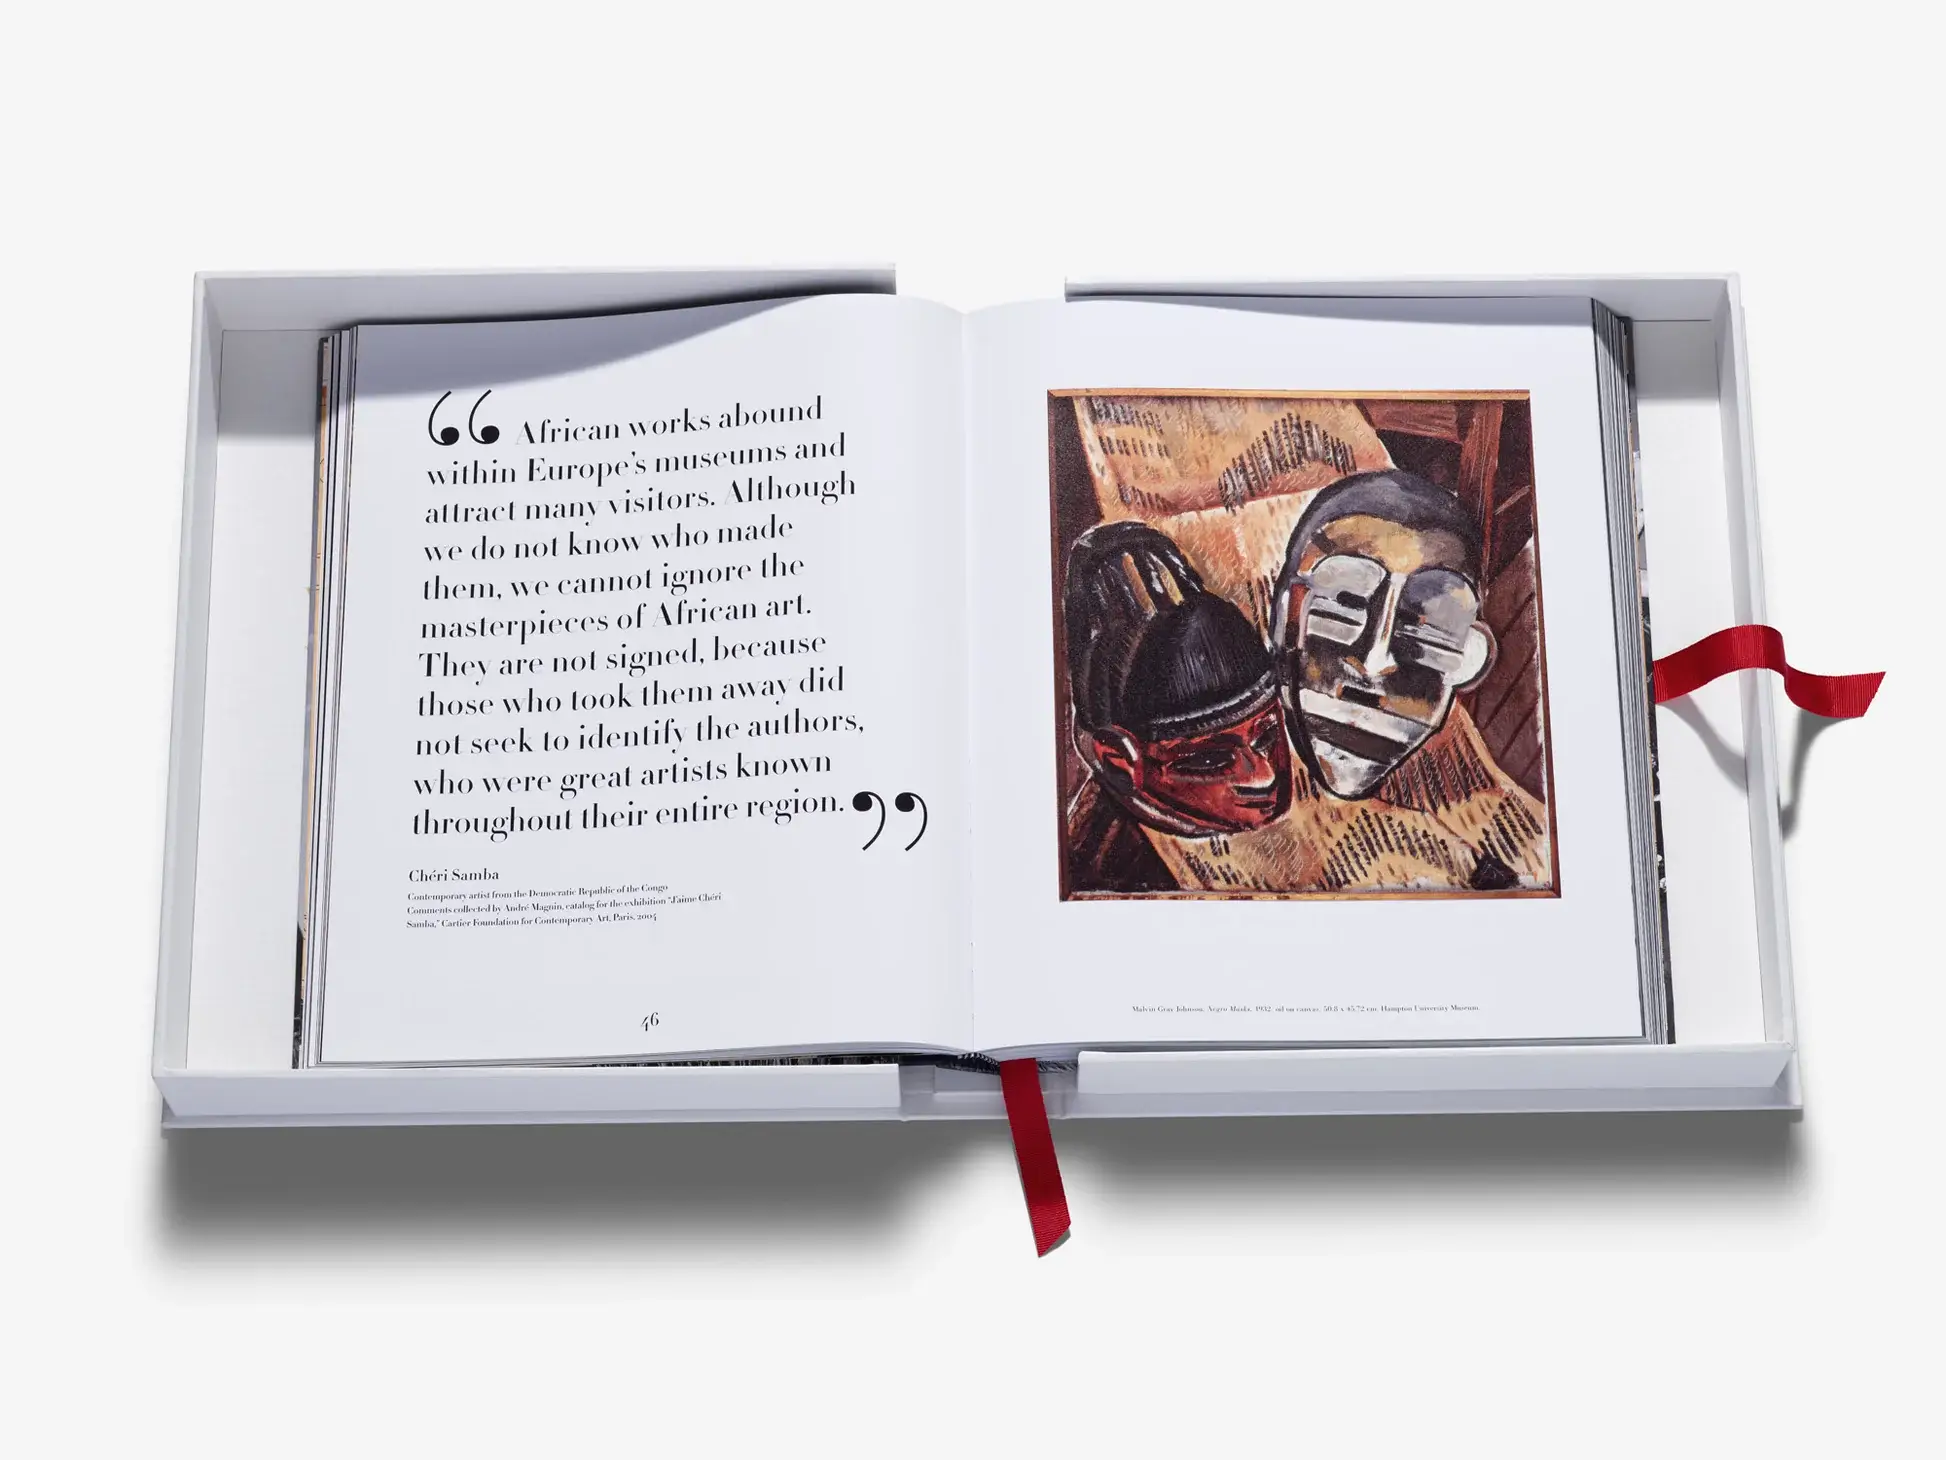 “ African works abound
within Europe’s museums and
attract many visitors. Although
we do not know who made
them, we cannot ignore the
masterpieces of African art.
They are not signed, because
those who took them away did
not seek to identify the authors,
who were great artists known
throughout their entire region. ”
Chéri Samba
Contemporary artist from the Democratic Republic of the Congo
Comments collected by André Magnin, catalog for the exhibition “J’aime Chéri
Samba,” Cartier Foundation for Contemporary Art, Paris, 2004
46
Malvin Gray Johnson, Negro Masks, 1932, oil on canvas, 50.8 x 45.72 cm, Hampton University Museum.